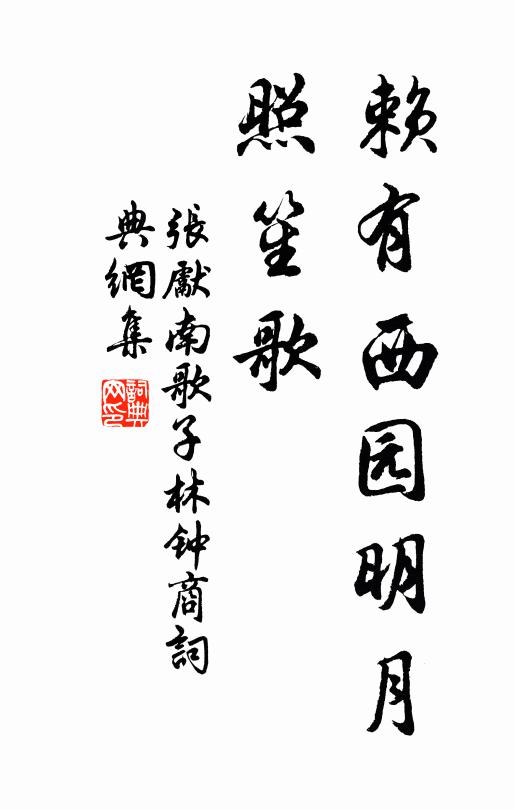 赖有西园明月
照笙歌
張獻南歌子林钟商詞
典網集
詞典网印